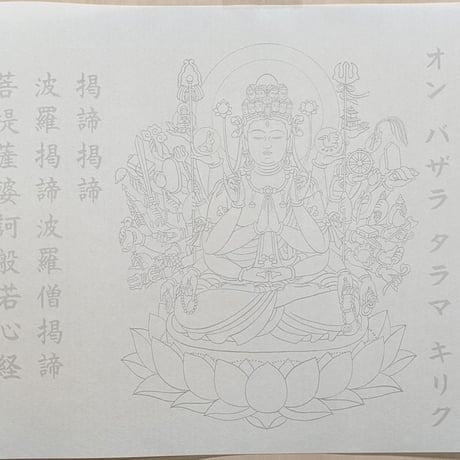 オン バザラ タラマ キリク
掲諦掲諦
波羅掲諦波羅僧掲諦
菩提薩婆訶般若心経